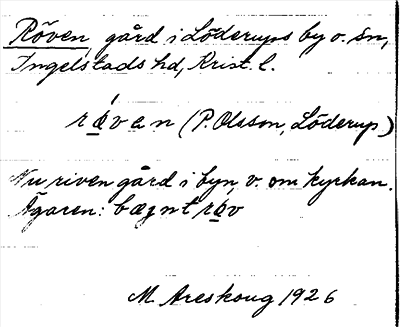 Röven, gård i Löderups by o. sn,
Ingelstads hd, Krist. l.
rǿvan (P. Olsson, Löderup)
Nu riven gård i byn, v. om kyrkan.
Ägaren: bægnt røv
M Areskoug 1926